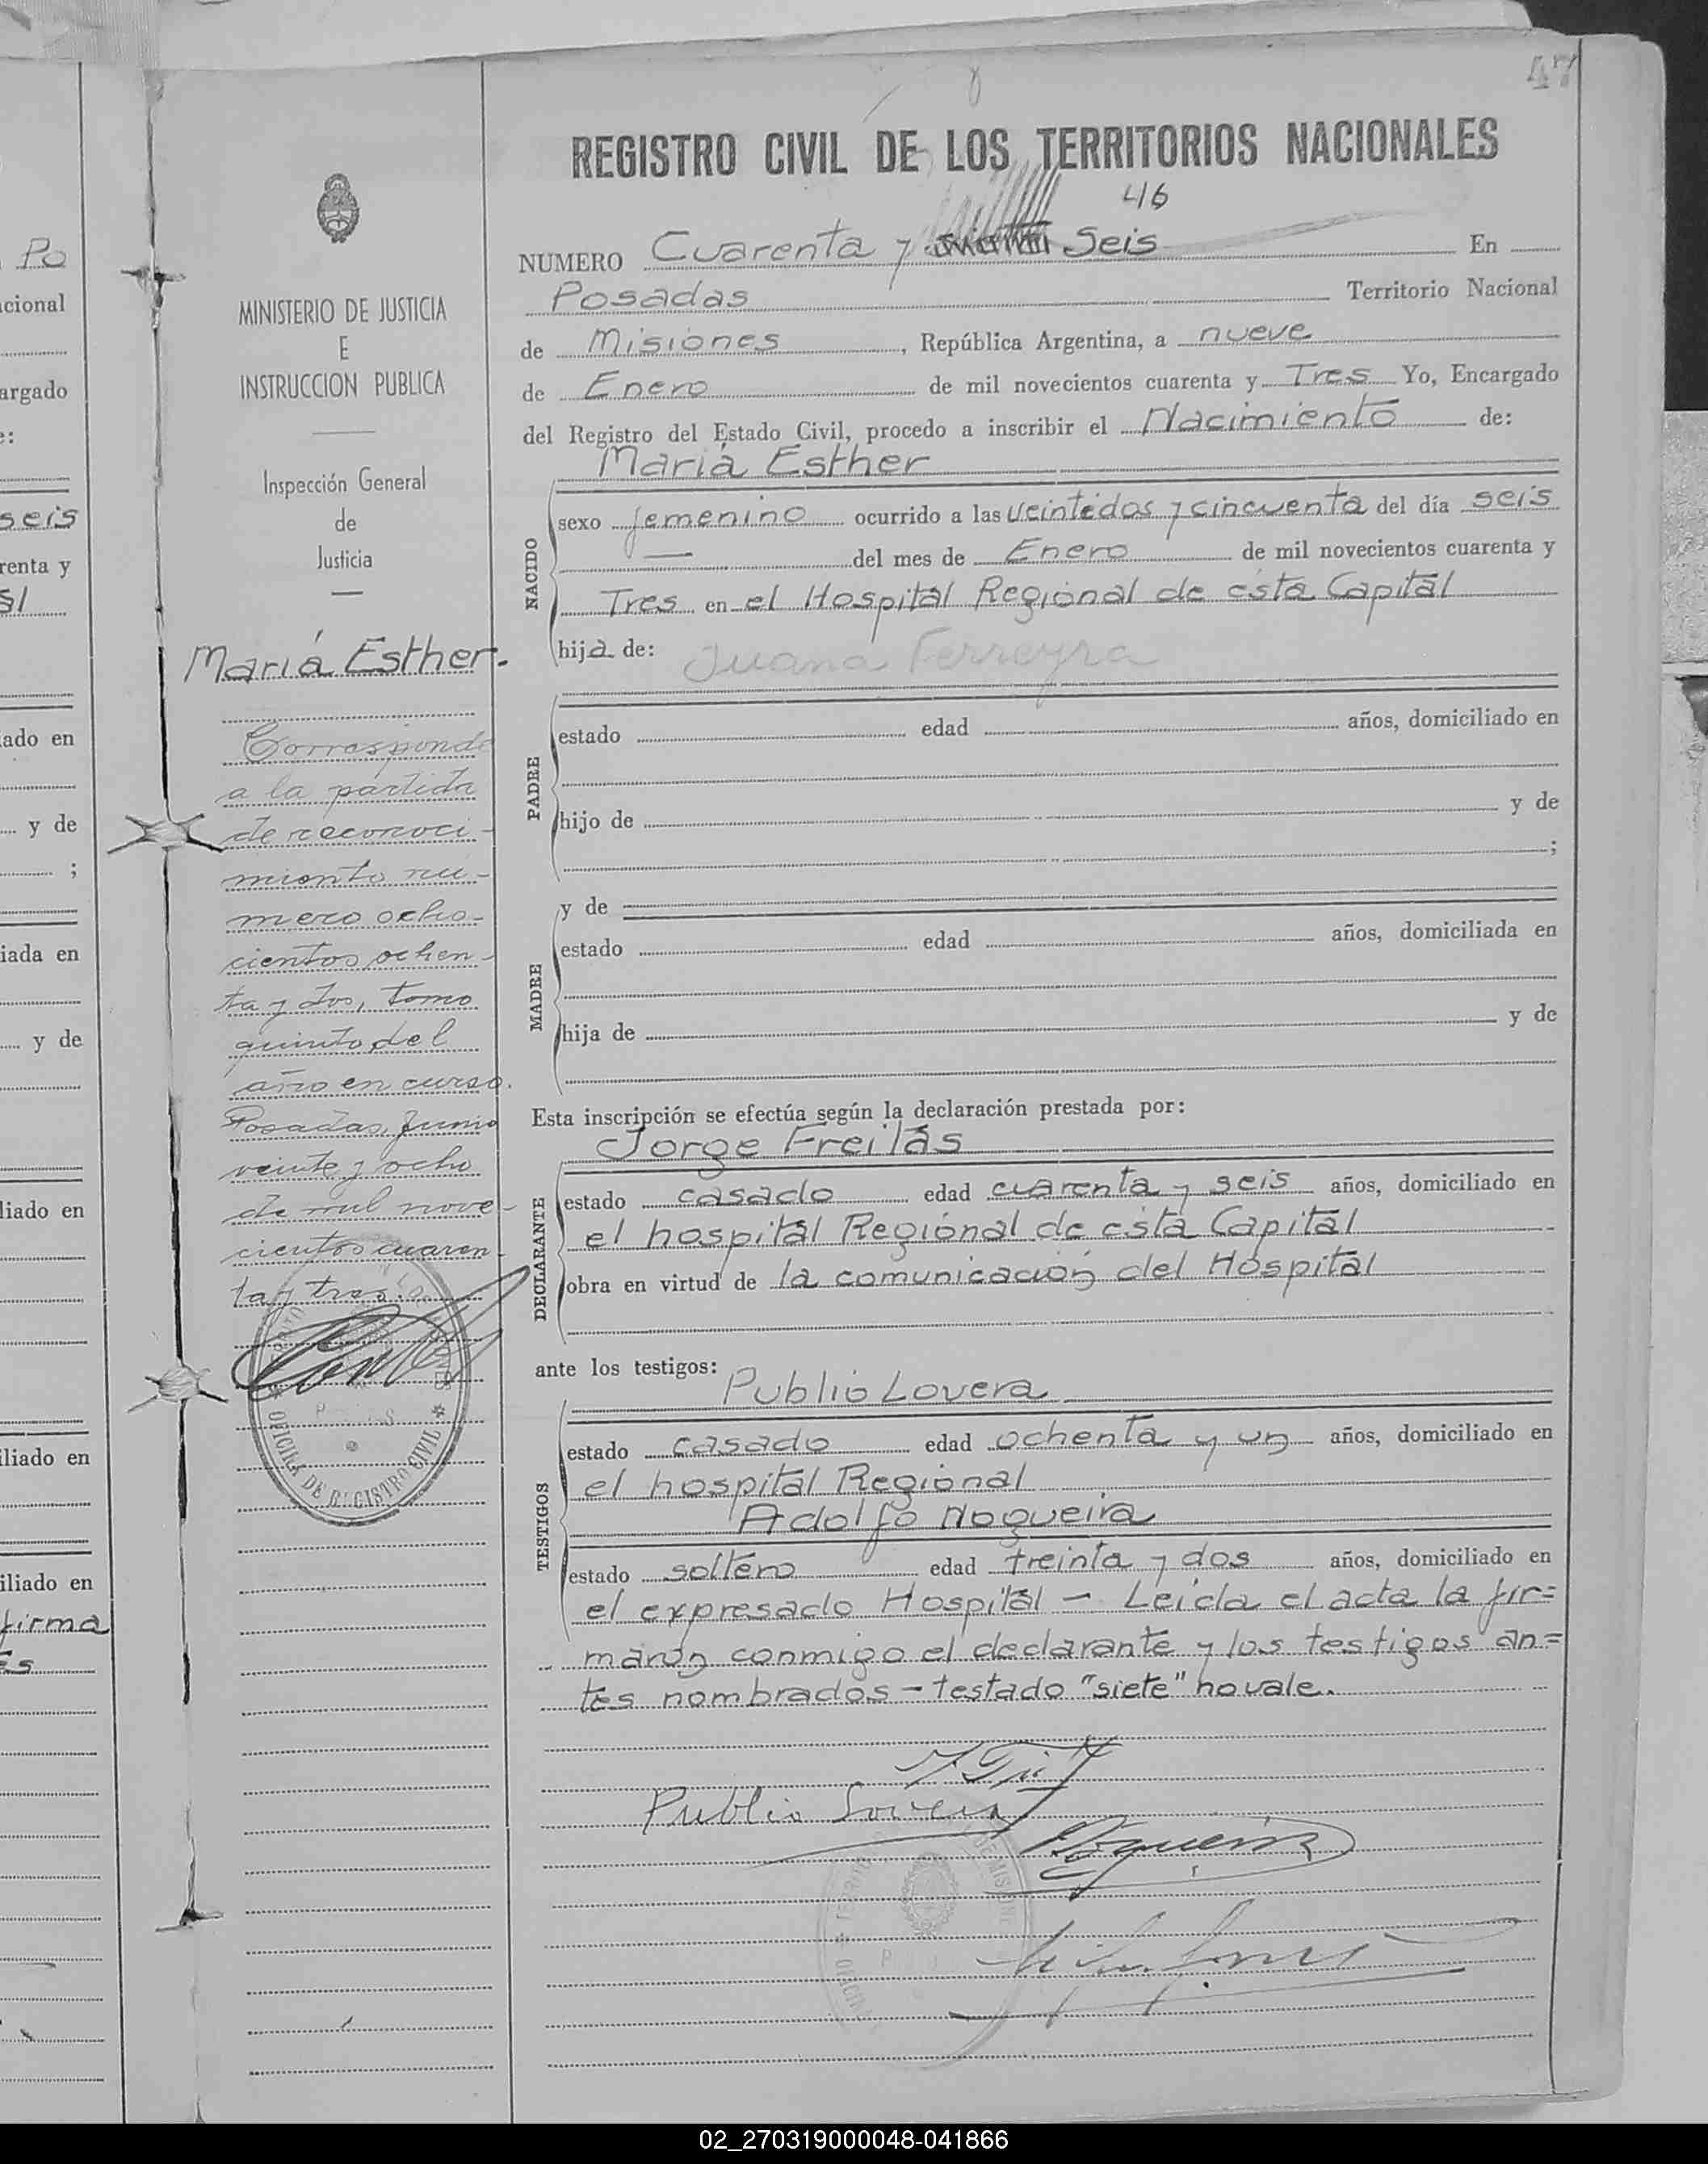 47
REGISTRO CIVIL DE LOS TERRITORIOS NACIONALES
46
NUMERO Cuarenta y Seis En
Posadas Territorio Nacional
de Misiones, República Argentina, a nueve
de Enero de mil novecientos cuarenta y Tres Yo, Encargado
del Registro del Estado Civil, procedo a inscribir el Nacimiento de:
Mariá Esther
NACIDO
sexo femenino ocurrido a las veintidos y cincuenta del día seis
— del mes de Enero de mil novecientos cuarenta y
Tres en el Hospital Regional de esta Capital
hija de: Juana Ferreyra
PADRE
estado edad años, domiciliado en
hijo de y de
;
y de
MADRE
estado edad años, domiciliada en
hija de y de
Esta inscripción se efectúa según la declaración prestada por:
Jorge Freilás
DECLARANTE
estado casado edad cuarenta y seis años, domiciliado en
el hospital Regional de esta Capital
obra en virtud de la comunicación del Hospital
ante los testigos:
Publio Lovera
TESTIGOS
estado casado edad ochenta y un años, domiciliado en
el hospital Regional
Adolfo Nogueira
estado soltero edad treinta y dos años, domiciliado en
el expresado Hospital — Leida el acta la fir=
maron conmigo el declarante y los testigos an=
tes nombrados — testado "siete" no vale.
Publio Lovera
Nogueira
MINISTERIO DE JUSTICIA
E
INSTRUCCION PUBLICA
Inspección General
de
Justicia
Mariá Esther.
Corresponde
a la partida
de reconoci-
miento nú-
mero ocho-
cientos ochen-
ta y dos, tomo
quinto del
año en curso.
Posadas, Junio
veinte y ocho
de mil nove-
cientos cuaren-
ta y tres.
OFICINA DE REGISTRO CIVIL
Po
cional
argado
e:
seis
renta y
al
ado en
y de
;
iada en
y de
liado en
iliado en
iliado en
firma
es
02_270319000048-041866